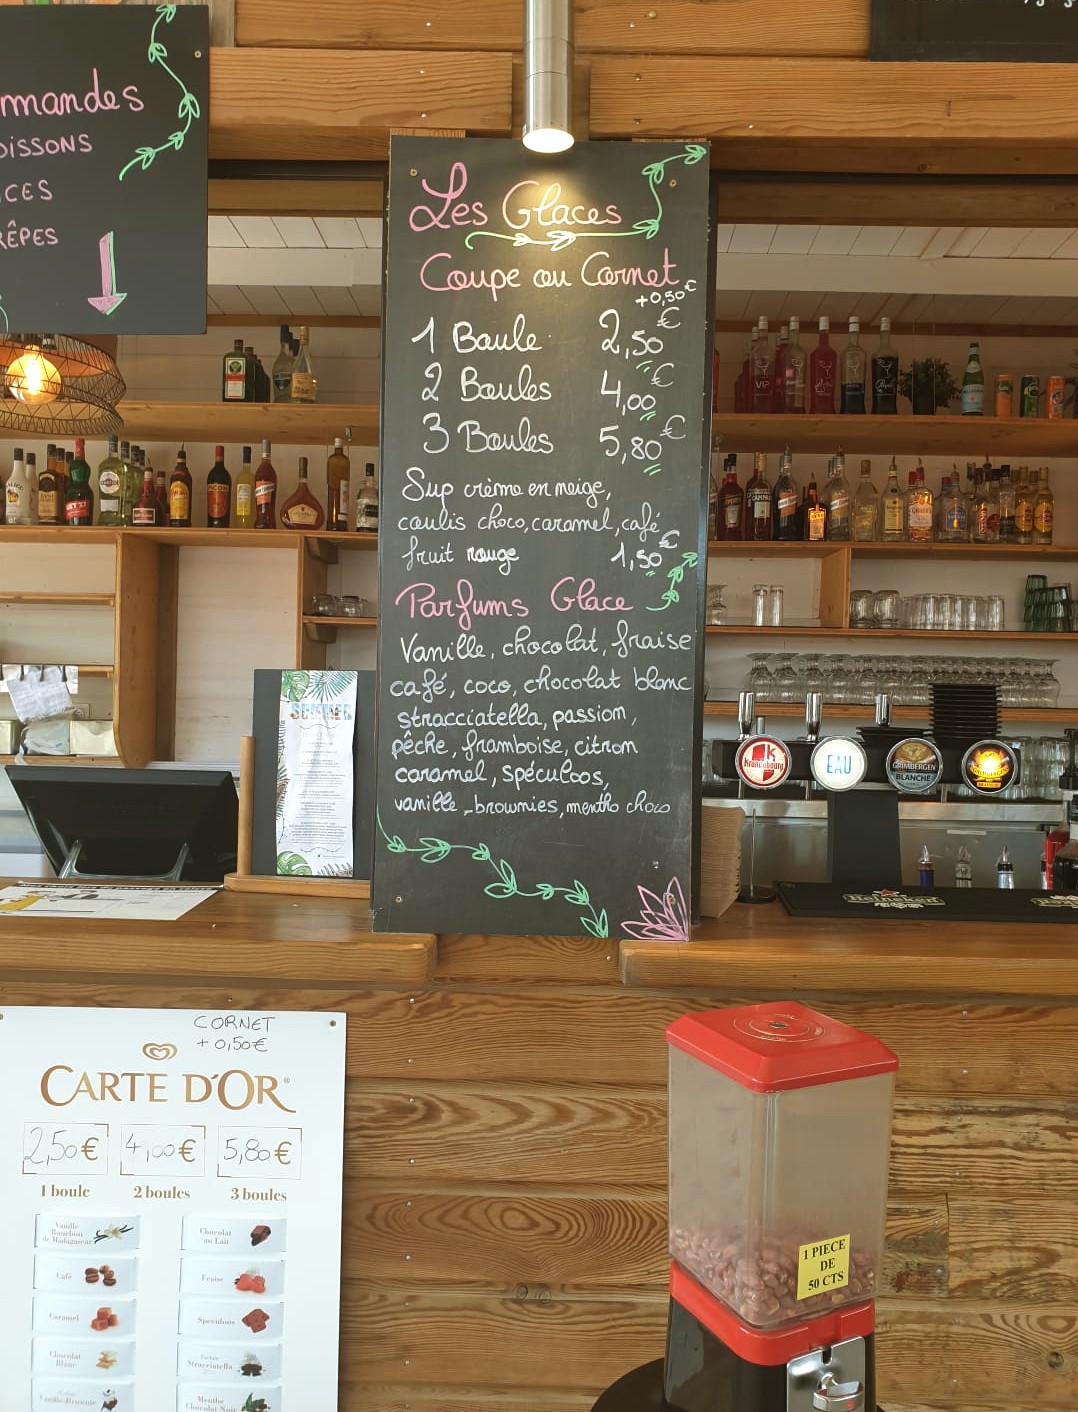 mmandes
OISSONS
CES
RÊPES
Les Glaces
Coupe ou Cornet
+0,50€
1 Boule 2,50€
2 Boules 4,00€
3 Boules 5,80€
Sup crème en neige,
coulis choco, caramel, café
fruit rouge 1,50€
Parfums Glace
Vanille, chocolat, fraise
café, coco, chocolat blanc
stracciatella, passion,
pêche, framboise, citron
caramel, spéculoos,
vanille_brownies, mentho choco
Kronenbourg
EAU
GRIMBERGEN
BLANCHE
Heineken
CORNET
+ 0,50€
CARTE D'OR
2,50€ 4,00€ 5,80€
1 boule 2 boules 3 boules
Vanille
Bourbon
de Madagascar
Chocolat
au Lait
Café
Fraise
Caramel
Speculoos
Chocolat
Blanc
Stracciatella
Vanille-Brownie
Menthe
Chocolat Noir
1 PIECE
DE
50 CTS